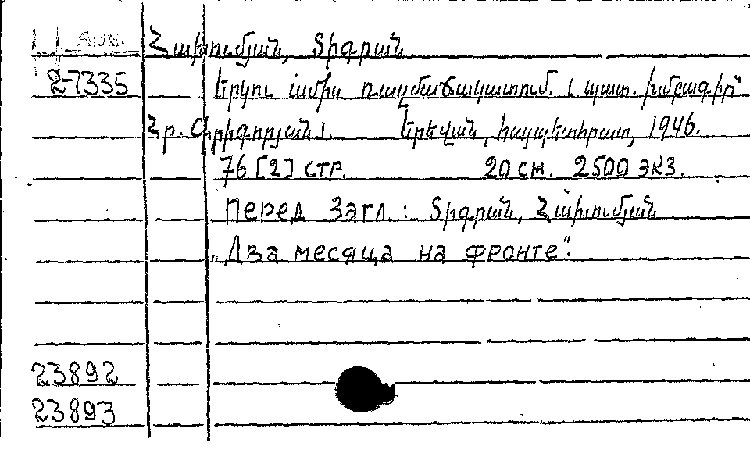 Հախումյան, Տիգրան
2-7335 Երկու ամիս ռազմաճակատում. (պատ. խմբագիր՝
Հր. Գրիգորյան). Երեվան, հայպետհրատ, 1946.
76 [2] стр. 20 см. 2500 экз.
Перед загл.: Տիգրան Հախումյան
„Два месяца на фронте".
23892
23893